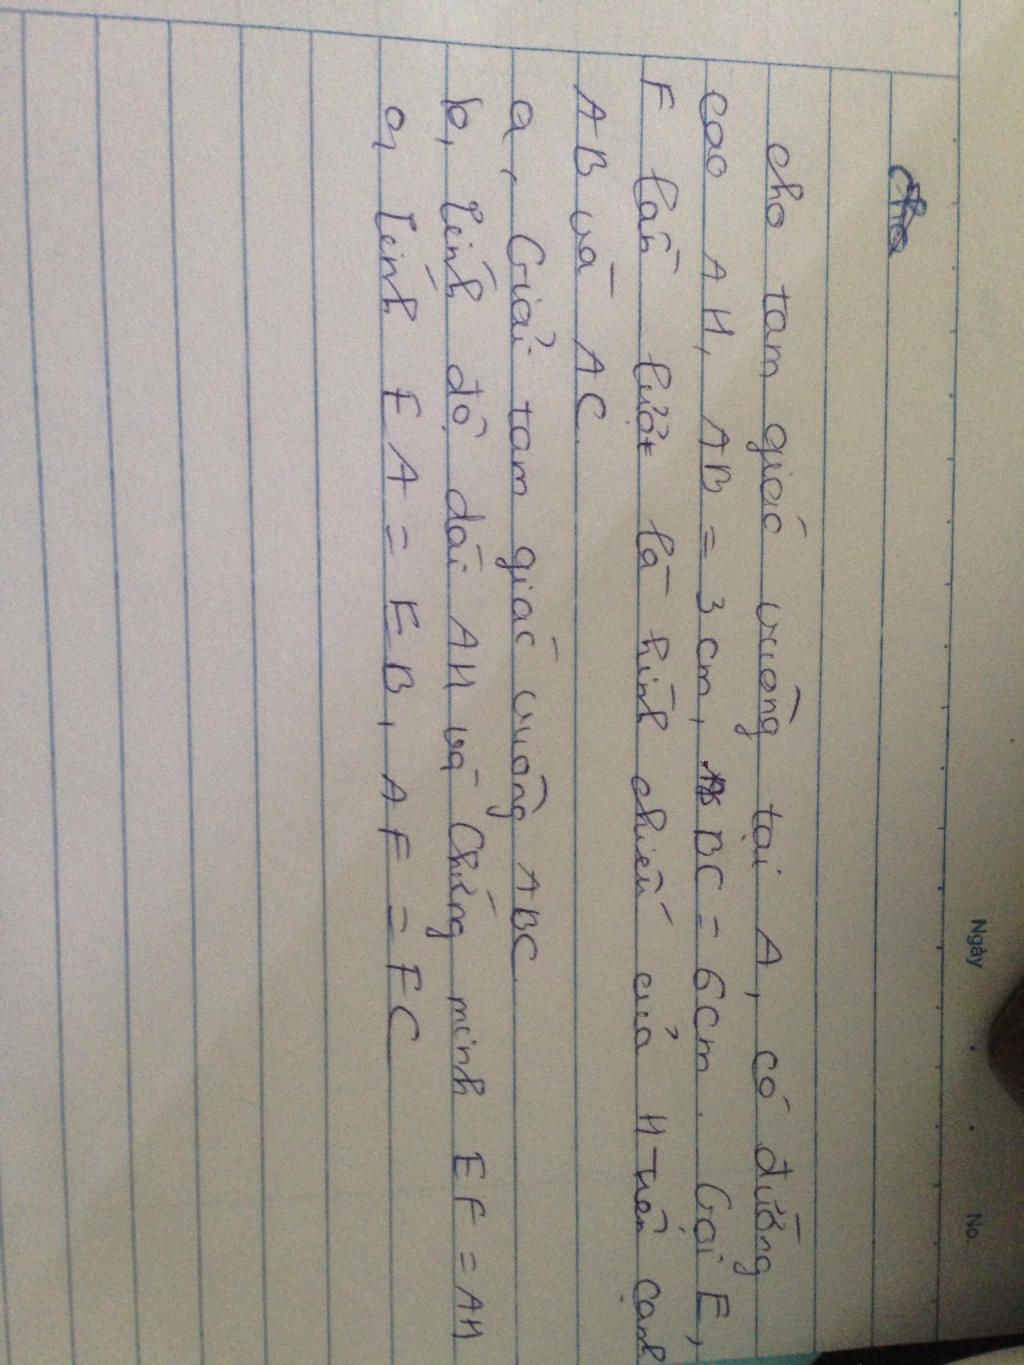 Ngày
No.
cho tam giác vuông tại A, có đường
cao AH, AB = 3cm, BC = 6cm. Gọi E,
F lần lượt là hình chiếu của H trên cạnh
AB và AC.
a, Giải tam giác vuông ABC
b, Tính độ dài AH và Chứng minh EF = AH
c, Tính EA = EB, AF = FC